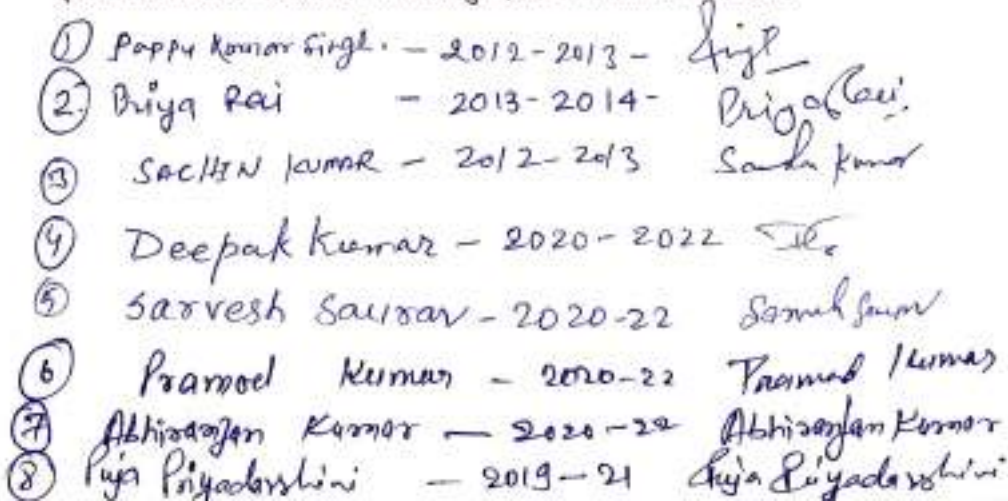 ① Pappu Kumar Singh. - 2012-2013 - Singh
②. Priya Rai - 2013-2014 - Priya Rai.
③ SACHIN KUMAR - 2012-2013 Kumar
④ Deepak Kumar - 2020-2022
⑤ Sarvesh Saurav - 2020-22
⑥ Pramod Kumar - 2020-22 Pramod Kumar
⑦ Abhiranjan Kumar - 2020-22 Abhiranjan Kumar
⑧ Puja Priyadarshini - 2019-21 Puja Priyadarshini